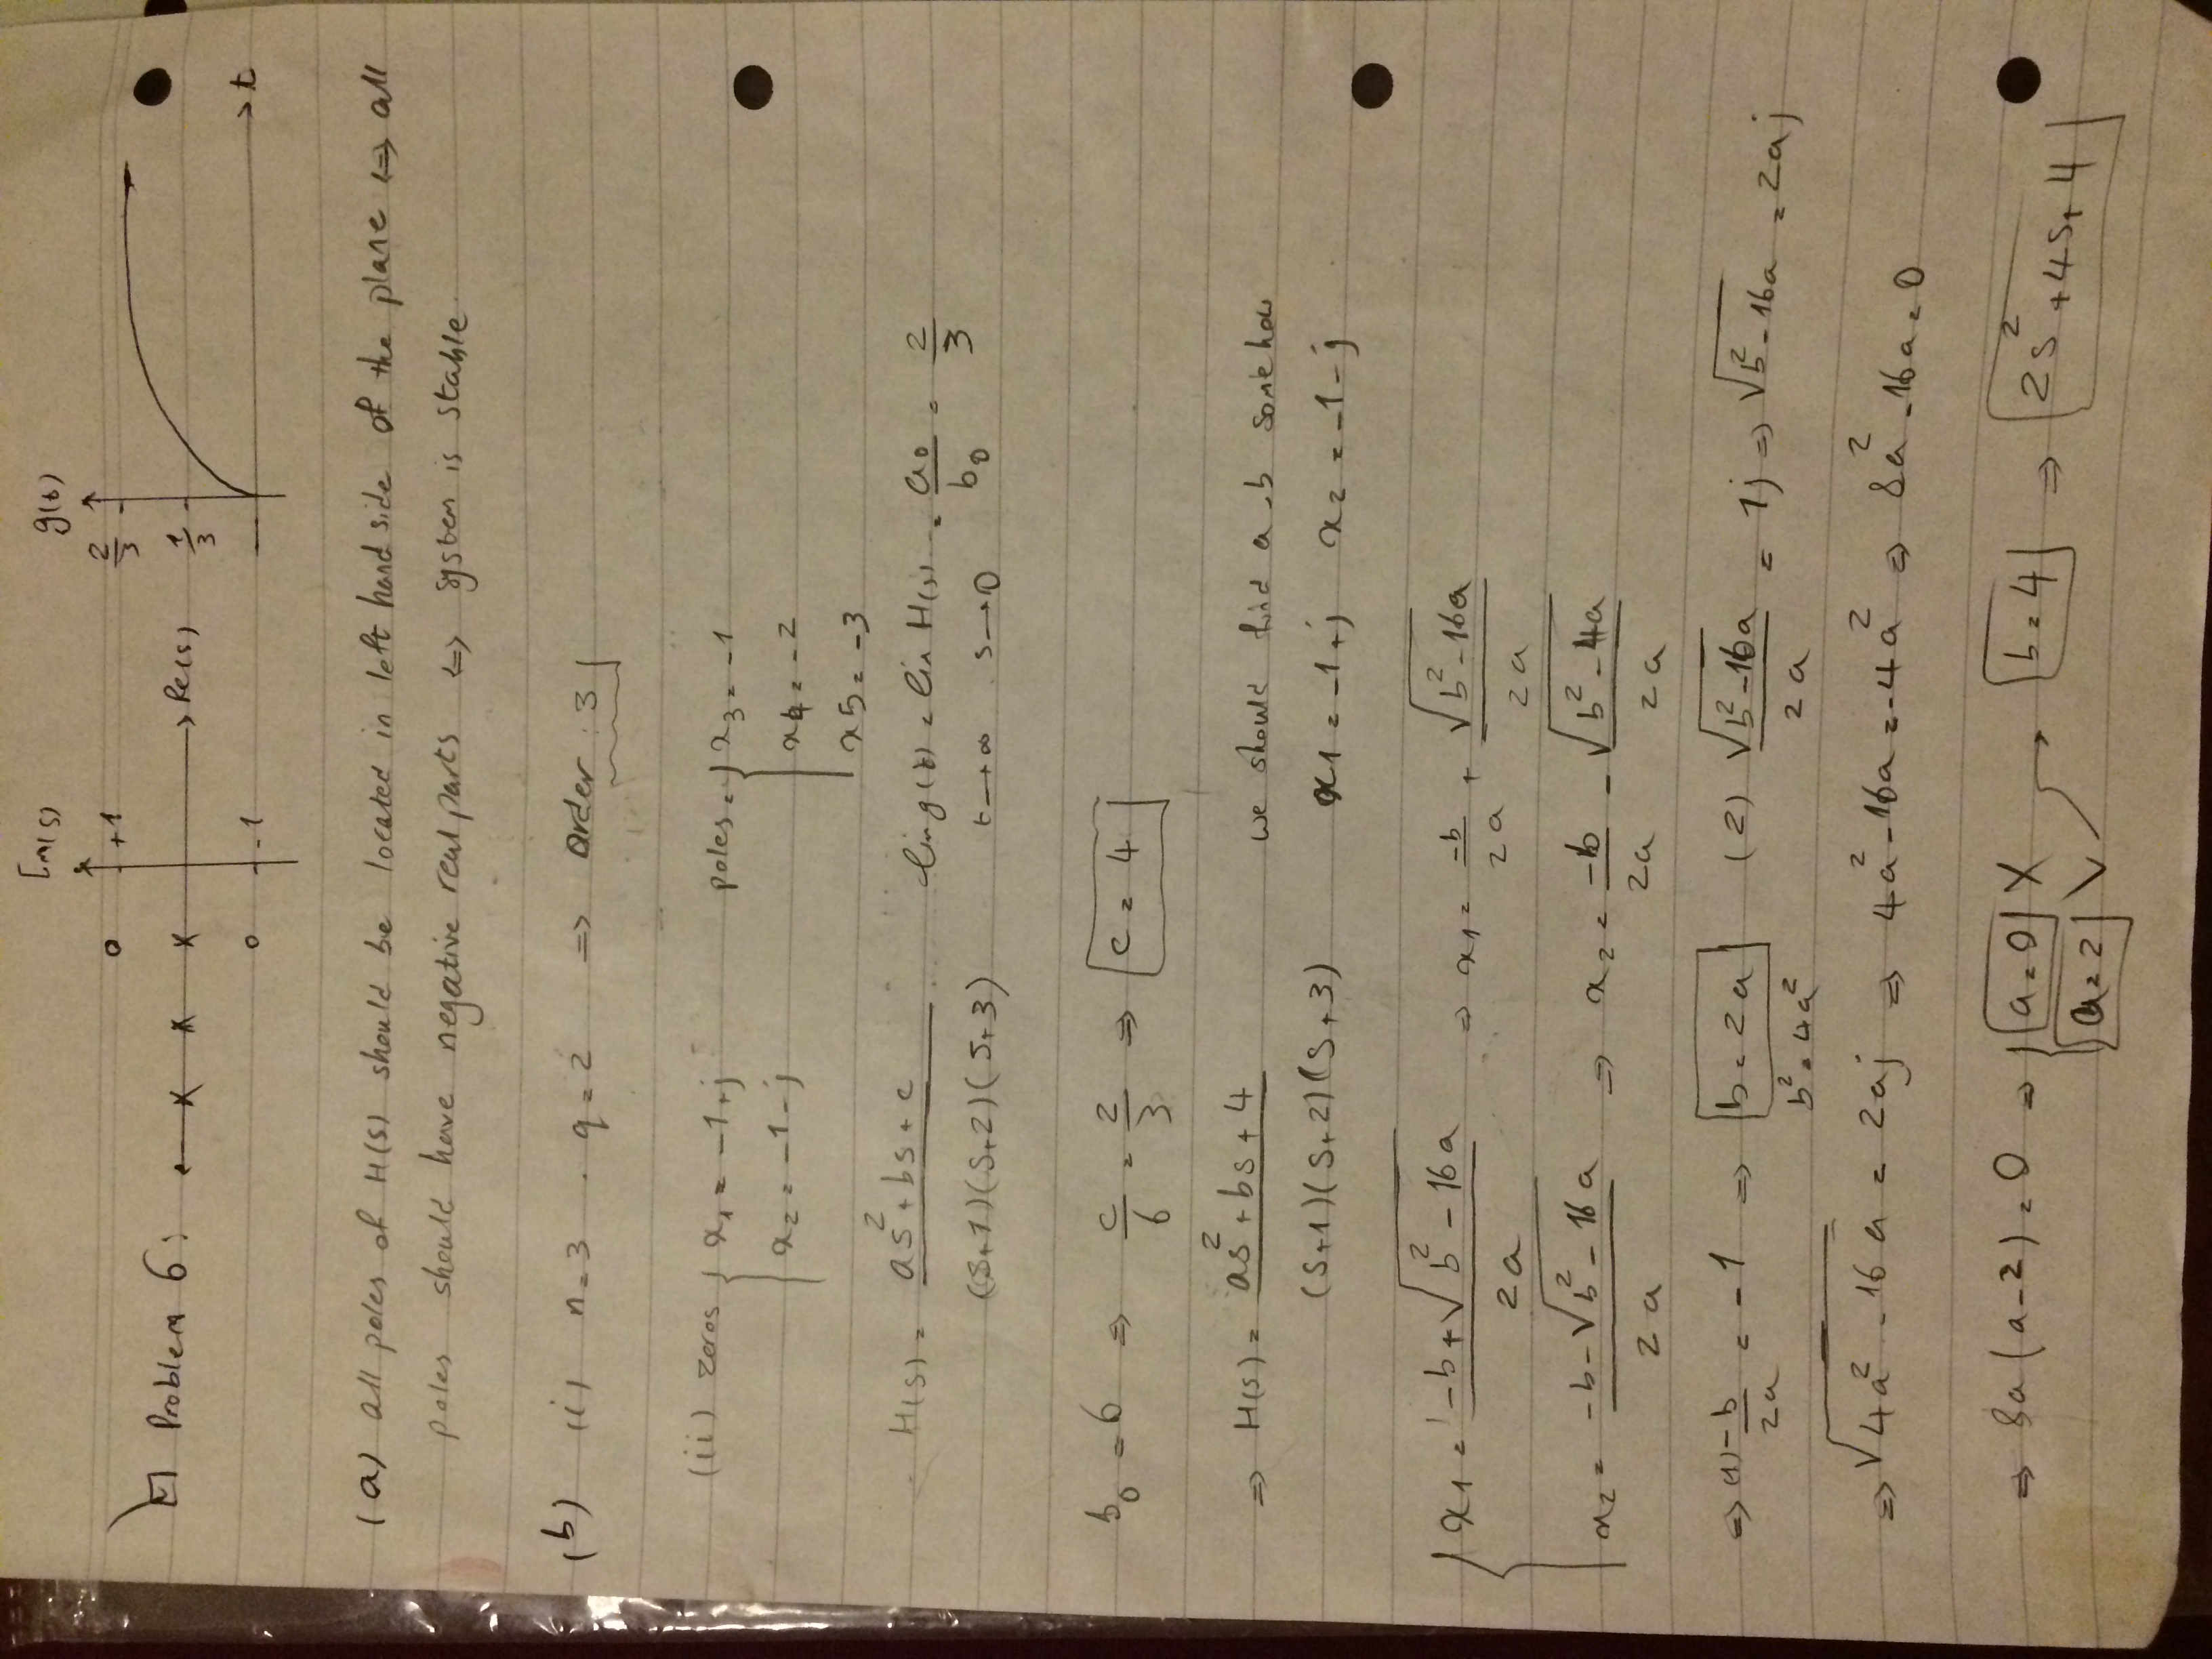 Im(s) g(t)
+1 2/3
Problem 6: Re(s) 1/3
-1 t
(a) all poles of H(s) should be located in left hand side of the plane ⇔ all
poles should have negative real parts ⇔ system is stable.
(b) (i) n=3 . q=2 ⇒ Order : 3
(ii) zeros { x₁ = -1+j poles = { x₃ = -1
x₂ = -1-j x4 = -2
x5 = -3
H(s) = (as²+bs+c) / ((s+1)(s+2)(s+3)) lim g(t) = lim H(s) = a₀/b₀ = 2/3
t→∞ s→0
b₀ = 6 ⇒ c/6 = 2/3 ⇒ c = 4
⇒ H(s) = (as²+bs+4) / ((s+1)(s+2)(s+3)) we should find a,b somehow
x1 = -1+j x2 = -1-j
x1 = (-b+√(b²-16a)) / 2a ⇒ x1 = -b/2a + √(b²-16a)/2a
x2 = (-b-√(b²-16a)) / 2a ⇒ x2 = -b/2a - √(b²-4a)/2a
⇒ (1) -b/2a = -1 ⇒ b = 2a (2) √(b²-16a)/2a = 1j ⇒ √(b²-16a) = 2aj
b² = 4a²
⇒ √(4a²-16a) = 2aj ⇒ 4a²-16a = -4a² ⇒ 8a²-16a = 0
⇒ 8a(a-2) = 0 ⇒ { a=0 X → b=4 ⇒ 2s²+4s+4
a=2 ✓